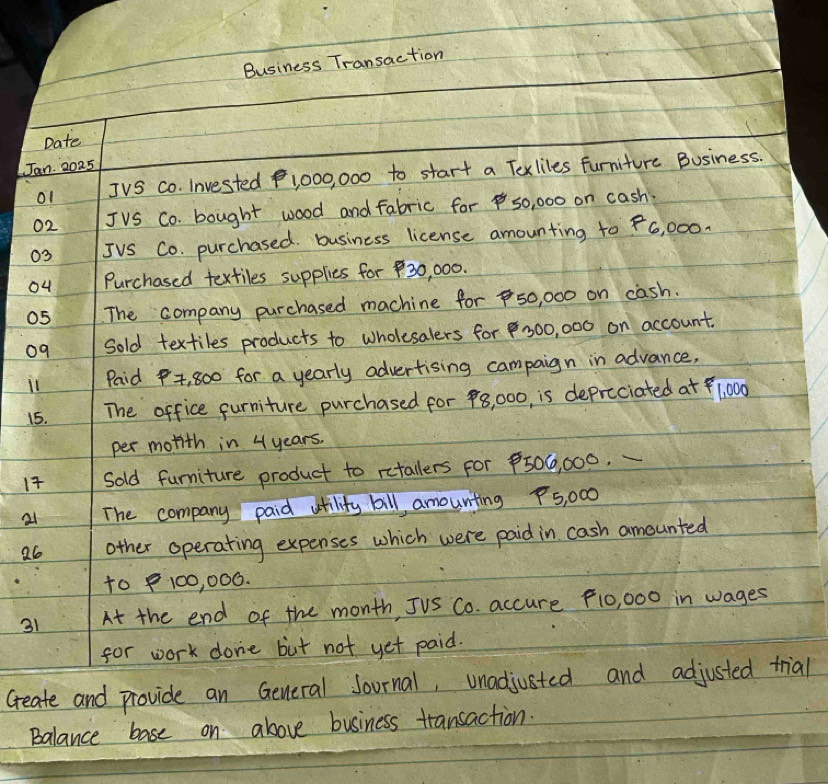 Business Transaction
Date
Jan. 2025
01 JVS Co. Invested ₱1,000,000 to start a Texliles Furniture Business.
02 JVS Co. bought wood and fabric for ₱50,000 on cash.
03 JVS Co. purchased. business license amounting to ₱6,000.
04 Purchased textiles supplies for ₱30,000.
05 The company purchased machine for ₱50,000 on cash.
09 Sold textiles products to wholesalers for ₱300,000 on account.
11 Paid ₱7,800 for a yearly advertising campaign in advance,
15. The office furniture purchased for ₱8,000, is depreciated at ₱1,000
per month in 4 years.
17 Sold furniture product to retailers for ₱500,000.
21 The company paid utility bill, amounting ₱5,000
26 other operating expenses which were paid in cash amounted
to ₱100,000.
31 At the end of the month, JVS Co. accure ₱10,000 in wages
for work done but not yet paid.
Create and provide an General Journal, unadjusted and adjusted trial
Balance base on above business transaction.